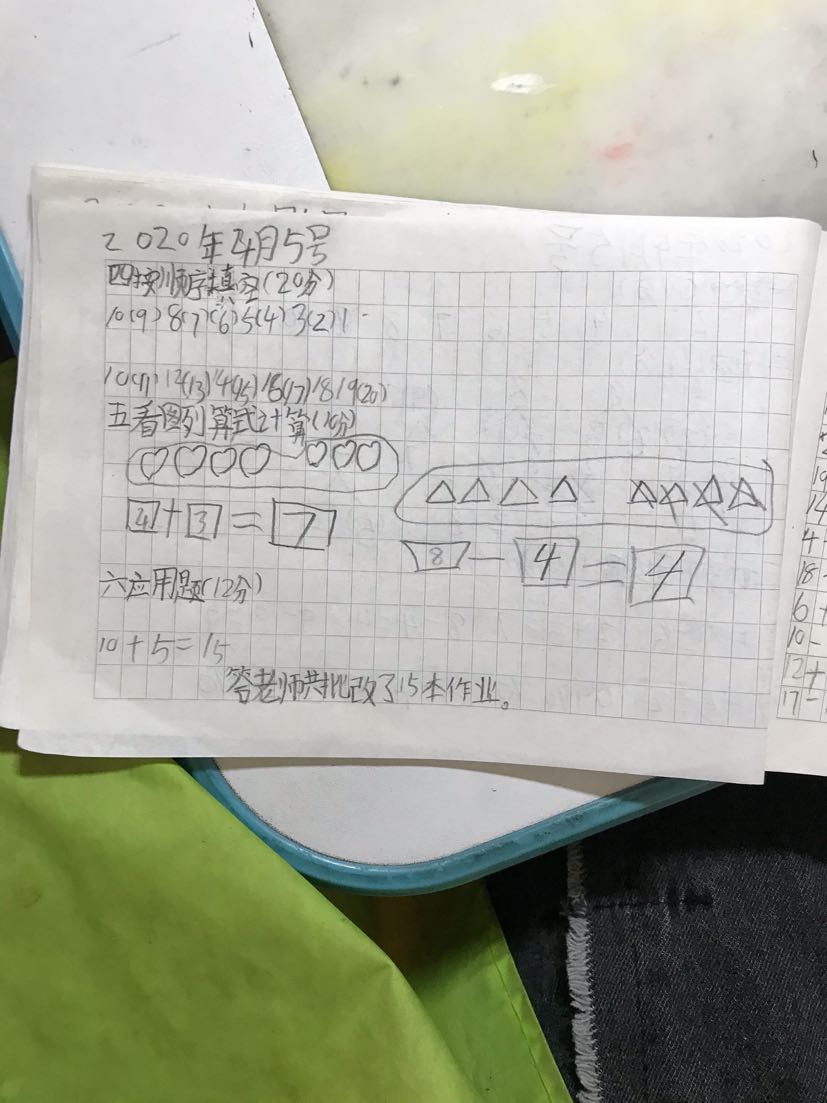 2020年4月5号
四按顺序填空(20分)
10(9)8(7)(6)5(4)3(2)1
10(11)12(13)14(15)16(17)18 19(20)
五看图列算式计算(10分)
4+3=7
8-4=4
六应用题(12分)
10+5=15
答老师共批改了15本作业。
19
14
4
18-
6+
10-
12+
17-